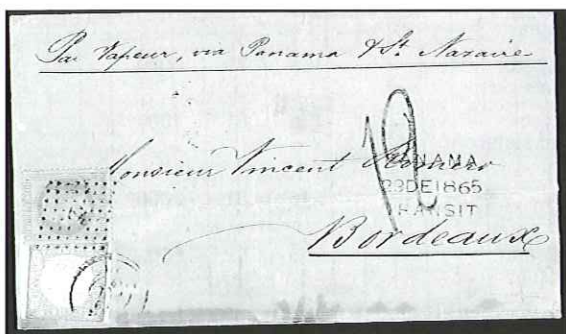 Par Vapeur, via Panama & St. Nazaire
12
Monsieur Vincent
PANAMA
23DE1865
TRANSIT
Bordeaux